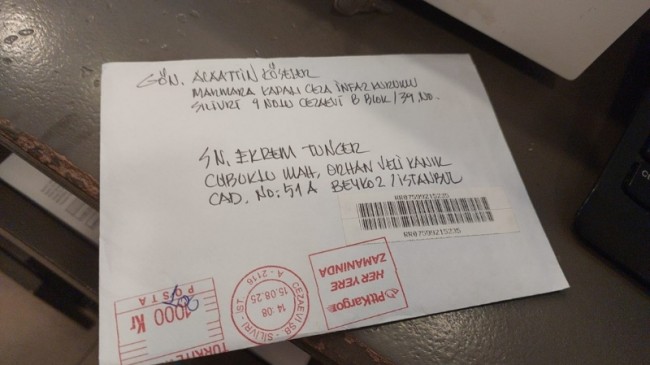 GÖN. ALAATTİN KÖSELER
MARMARA KAPALI CEZA İNFAZ KURUMU
SİLİVRİ 9 NOLU CEZAEVİ B BLOK / 39 NO.
SN. EKREM TUNCER
ÇUBUKLU MAH. ORHAN VELİ KANIK
CAD. NO: 51 A BEYKOZ / İSTANBUL
RR07599215235
RR07599215235
PttKargo
HER YERE
ZAMANINDA
CEZAEVİ ŞB - SİLİVRİ - İST.
14 08
15.08.25
A - 2116
1000 Kr
POSTA
TÜRKİYE